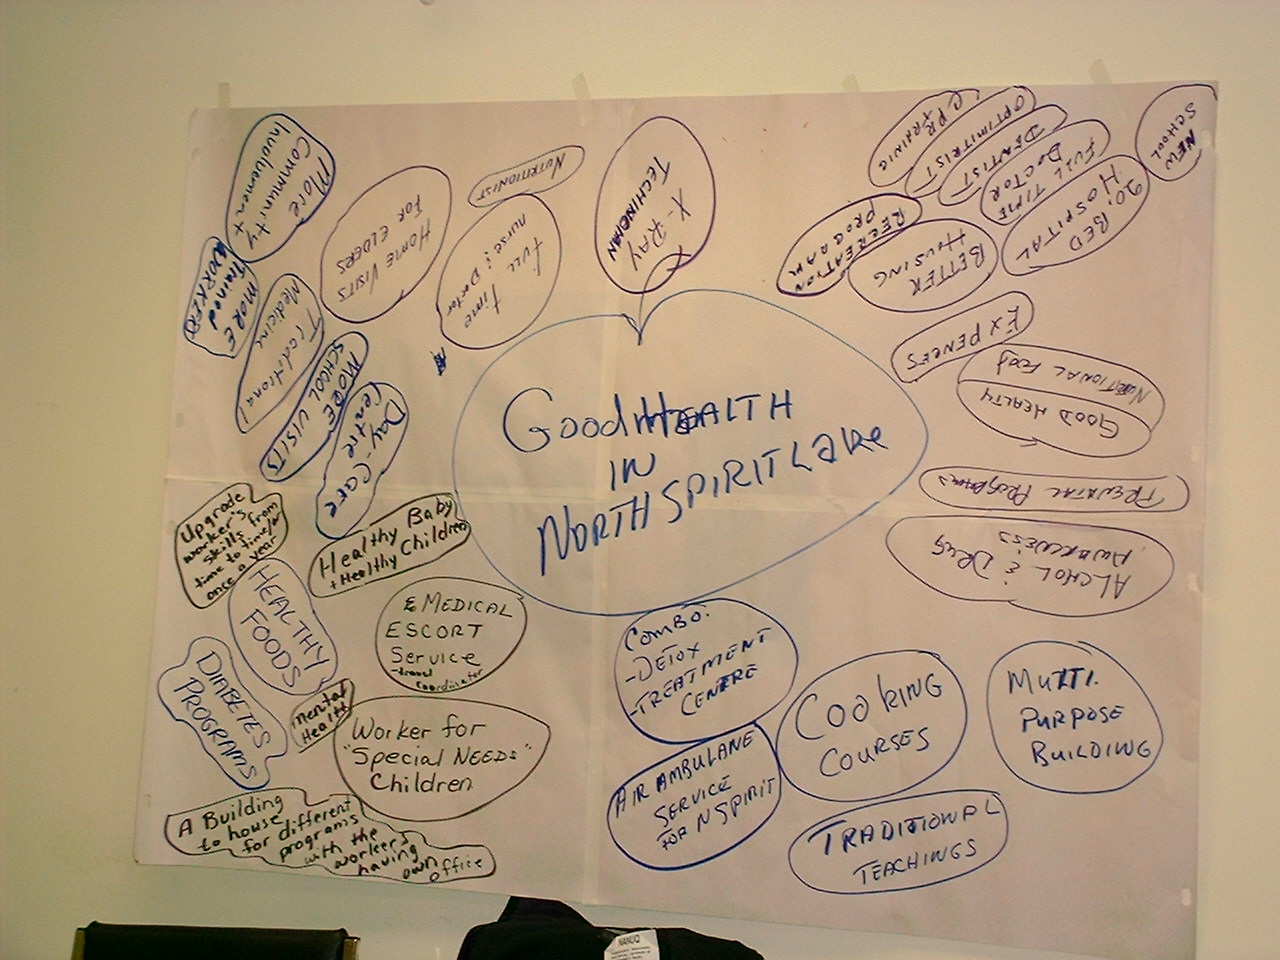 Good HEALTH
IN
NORTH SPIRIT Lake
More
Community
Involvement
MORE
Trained
WORKERS
Traditional
Medicine
MORE
SCHOOL VISITS
Day-Care
Centre
HOME VISITS
FOR ELDERS
NUTRITIONIST
full time
nurse & Doctor
X-RAY
TECHINCIAN
CPR
TRAINIG
OPTIMITRIST
DENTIST
FULL TIME
DOCTOR
20. BED
HOSPITAL
NEW
SCHOOL
RECREATION
PROGRAM
BETTER
HOUSING
EXPENCES
NUTRITIONAL FOOD
GOOD HEALTH
PRENATAL PROGRAMS
ALCHOL & DRUG
AWARENESS
Upgrade
worker's
skills from
time to time/or
once a year
Healthy Baby
+ Healthy Children
HEALTHY
FOODS
MEDICAL
ESCORT
Service
-travel
coordinator
DIABETES
PROGRAMS
mental
Health
Worker for
"Special NEEDS"
Children
A Building
to house
for different
programs
with the
workers
having own
office
COMBO:
-DETOX
-TREATMENT
CENTRE
AIR AMBULANE
SERVICE
FOR N SPIRIT
COOKING
COURSES
MULTI.
PURPOSE
BUILDING
TRADITIONAL
TEACHINGS
NANUQ